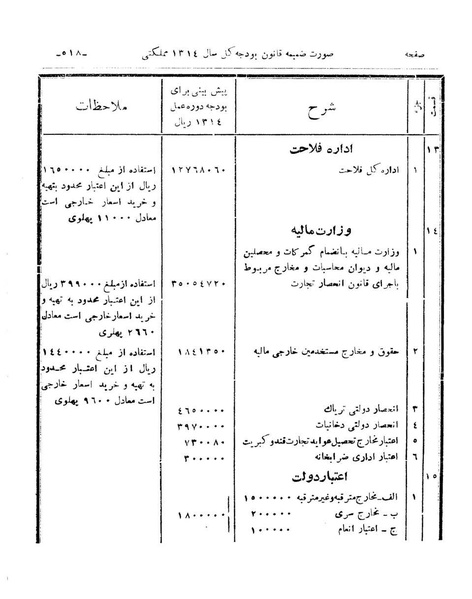 صفحه صورت ضمیمه قانون بودجه کل سال ۱۳۱٤ مملکتی ـ٥١٨ـ
قسمت جزء شرح پیش بینی برای بودجه دوره عمل ۱۳۱٤ ریال ملاحظات
۱۳ اداره فلاحت
۱ اداره کل فلاحت ۱۲۷٦۸۰٦۰ استفاده از مبلغ ۱٦٥۰۰۰۰
ریال از این اعتبار محدود بتهیه
و خرید اسعار خارجی است
معادل ۱۱۰۰۰ پهلوی
۱٤ وزارت مالیه
۱ وزارت مالیه بانضمام گمرکات و محصلین
مالیه و دیوان محاسبات و مخارج مربوط
باجرای قانون انحصار تجارت ۳٥۰٥٤۷۲۰ استفاده از مبلغ ۳۹۹۰۰۰ ریال
از این اعتبار محدود به تهیه و
خرید اسعار خارجی است معادل
۲٦٦۰ پهلوی
۲ حقوق و مخارج مستخدمین خارجی مالیه ۱۸٤۱۳٥۰ استفاده از مبلغ ۱٤٤۰۰۰۰
ریال از این اعتبار محدود
به تهیه و خرید اسعار خارجی
است معادل ۹٦۰۰ پهلوی
۳ انحصار دولتی تریاك ٤٦٥۰۰۰۰
٤ انحصار دولتی دخانیات ۳۹۷۰۰۰۰
٥ اعتبار مخارج تحصیل عواید تجارت قند و کبریت ۷۳۰۰۸۰
٦ اعتبار اداری ضرابخانه ۳۰۰۰۰۰
۱٥ اعتبار دولت
۱ الف ـ مخارج مترقبه وغیر مترقبه ۱٥۰۰۰۰۰
ب ـ مخارج سری ۲۰۰۰۰۰ ۱۸۰۰۰۰۰
ج ـ اعتبار انعام ۱۰۰۰۰۰